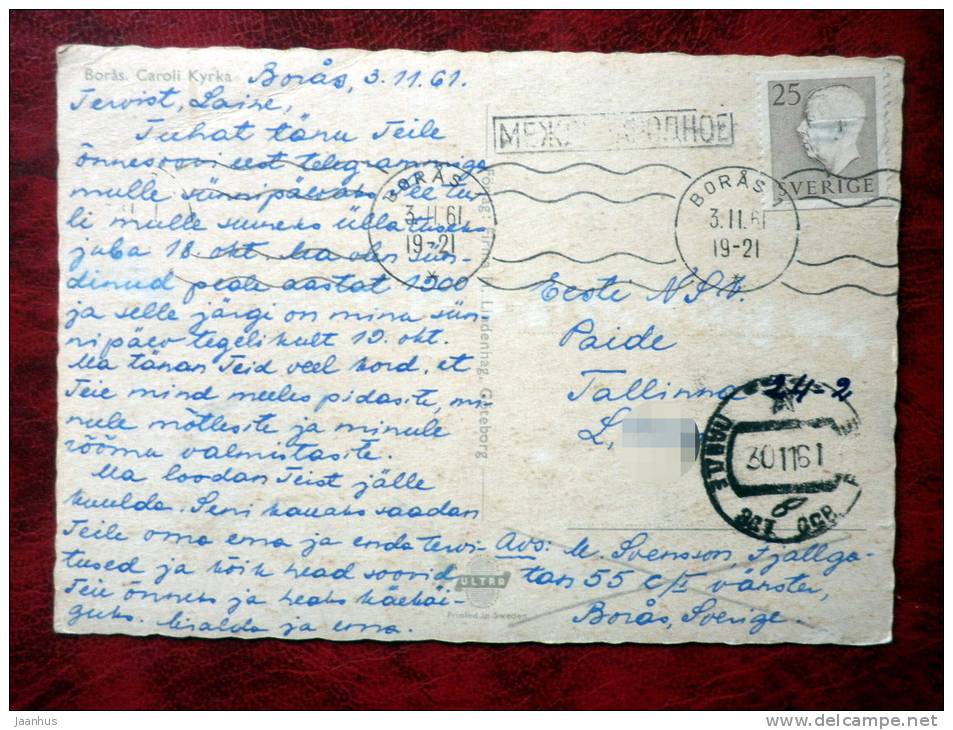 Borås. Caroli Kyrka
Borås, 3.11.61.
Tervist, Laine,
Tuhat tänu Teile
õnnesoovi eest telegrammiga
mulle sünnipäevaks. See tu-
li mulle suureks üllatuseks
juba 18. okt. Ma olen sün-
dinud peale aastat 1900
ja selle järgi on minu sün-
nipäev tegelikult 19. okt.
Ma tänan Teid veel kord, et
Teie mind meeles pidasite, mi-
nule mõtlesite ja minule
rõõmu valmistasite.
Ma loodan Teist jälle
kuulda. Seni kauaks saadan
Teile oma ema ja enda tervi-
tused ja kõik head soovid
Teie õnneks ja heaks käekäi-
guks. ja ema.
Förlag: Firma H. Lindenhag, Göteborg
ULTRA
Printed in Sweden
25
SVERIGE
BORÅS 1
3.11.61
19-21
BORÅS 1
3.11.61
19-21
Eesti N.S.V.
Paide
Tallinna 24-2
L.
PAIDE
301161
ССР
Avs: M. Svensson, Fjällga-
tan 55 c/I vänster,
Borås, Sverige.
Jaanhus
www.delcampe.net